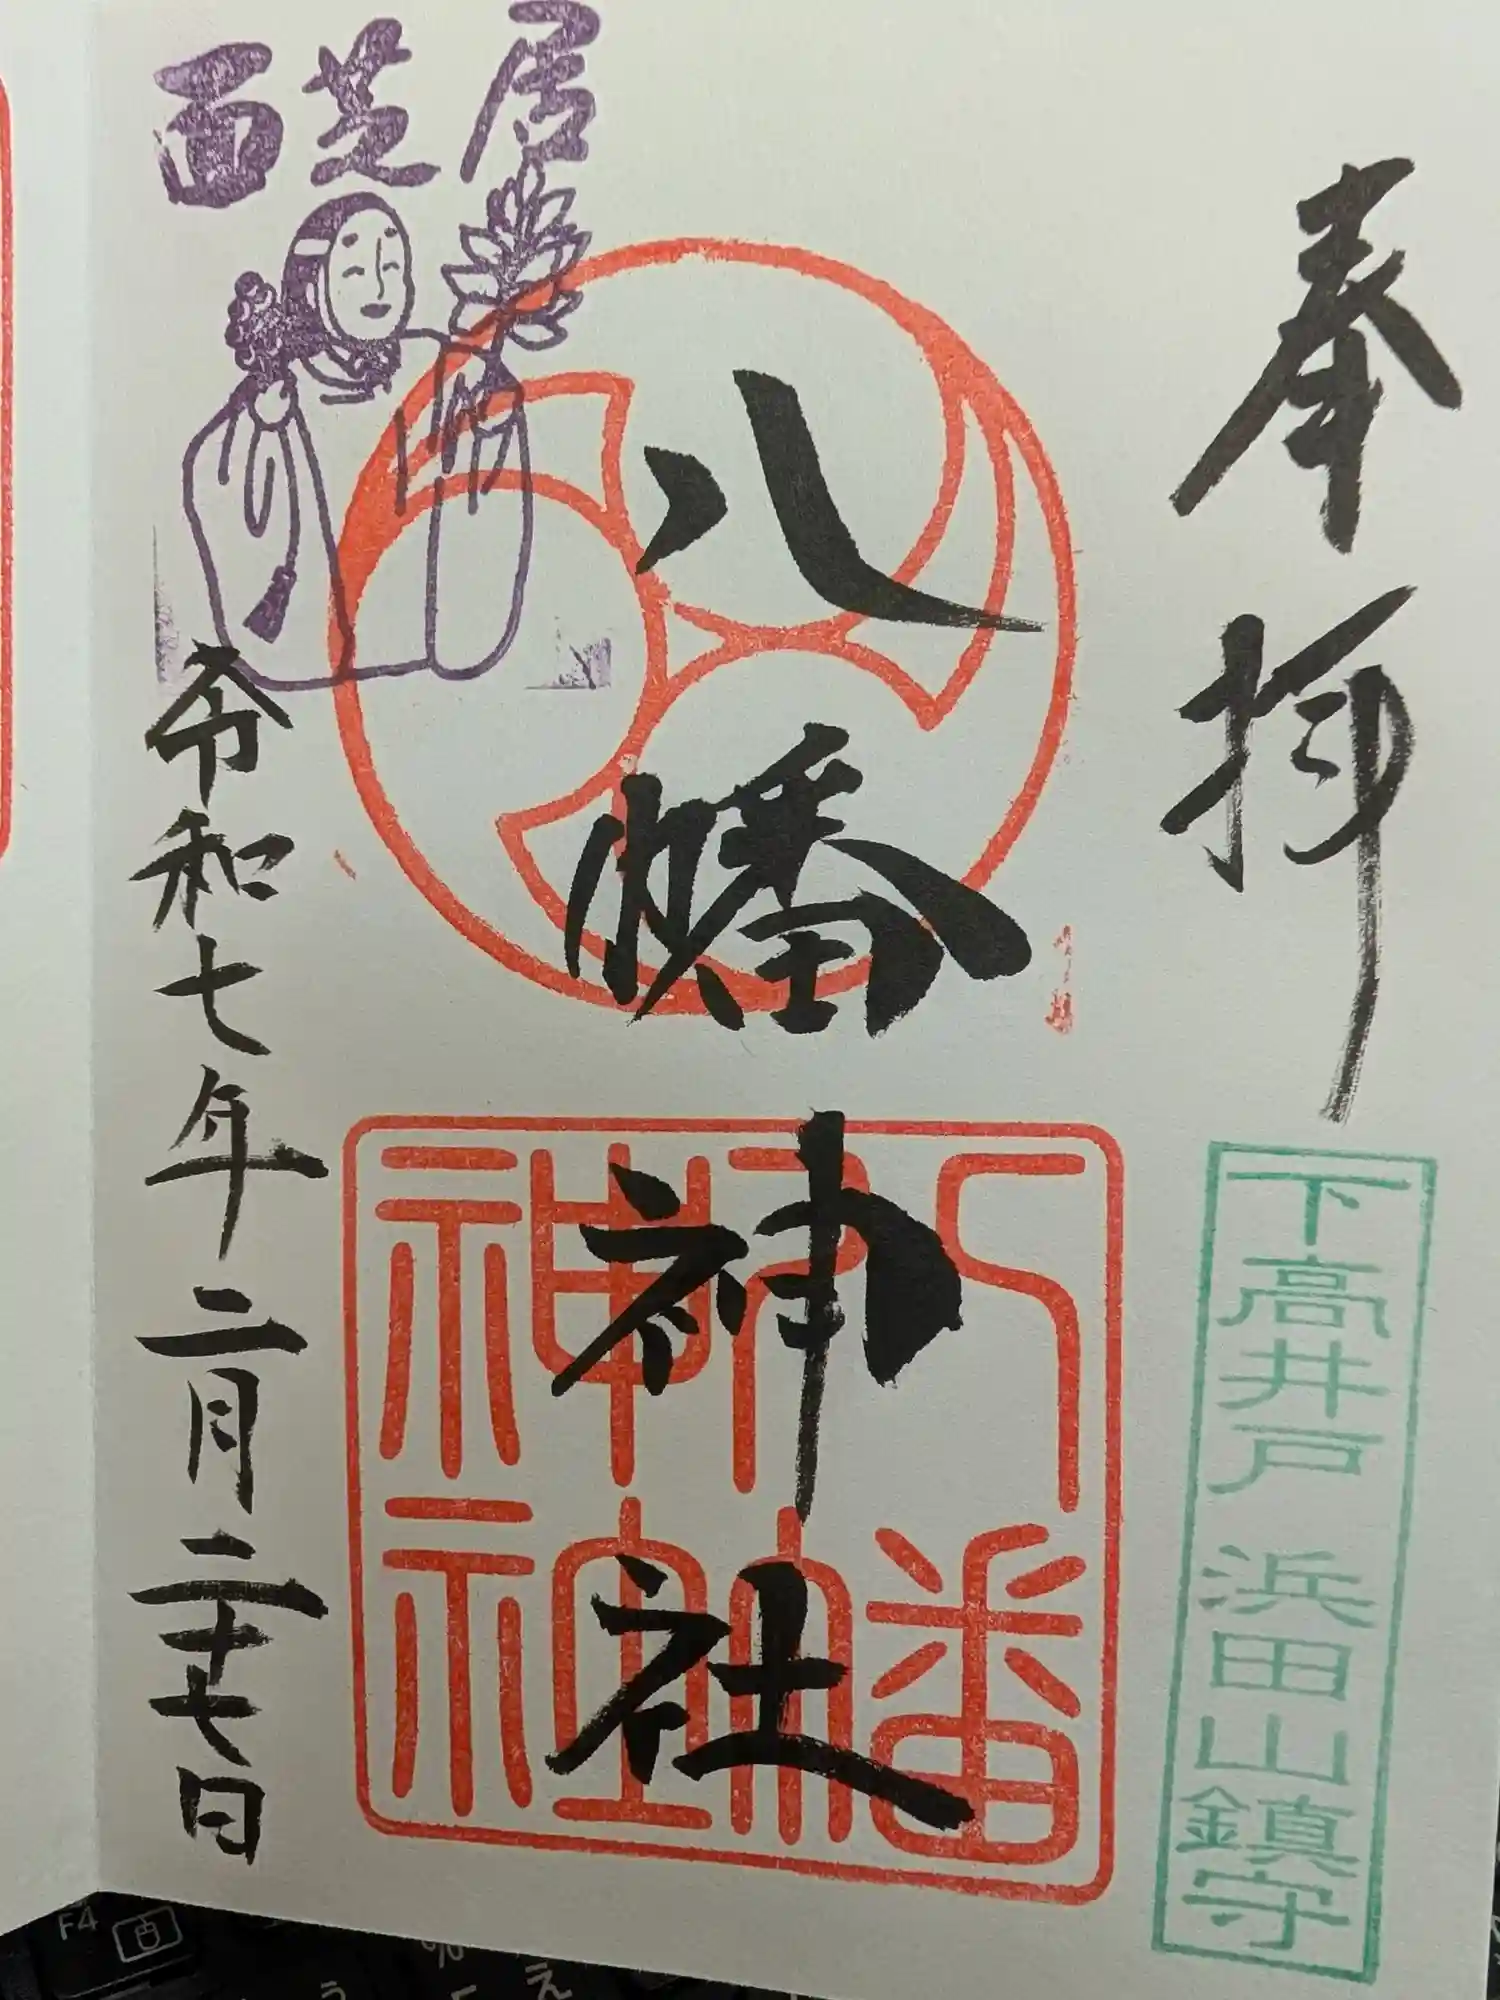 奉拝
下高井戸 浜田山鎮守
八幡神社
八幡
神社
面芝居
令和七年二月二十七日
F4
%
う
え